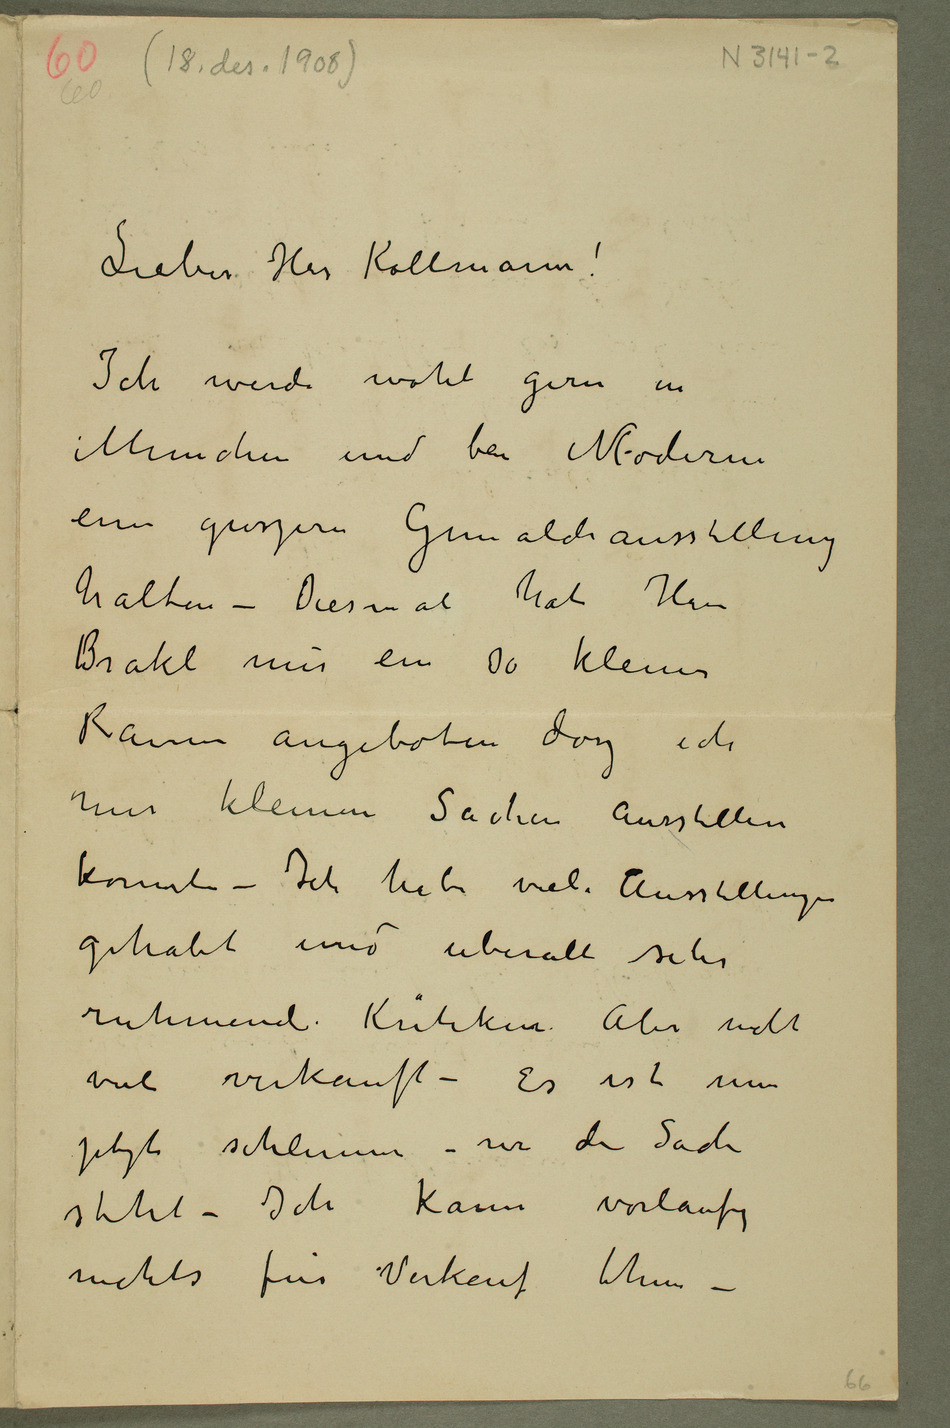 60 (18.des.1908) N 3141-2
60
Lieber Her Kollmann!
Ich werde wohl gern in
Munchen und bei Moderne
eine groszere Gemaldeausstellung
halten – Diesmal hat Herr
Brakl mir ein so kleines
Raum angeboten dasz ich
nur kleinen Sachen ausstellen
konnte – Ich habe viele Ausstellungen
gehabt und uberall sehr
ruhmende Kritiken. Aber nicht
viel verkauft – Es ist nun
jetzt schlimm – wo die Sache
steht – Ich kann vorlaufig
nichts fur Verkauf thun –
66